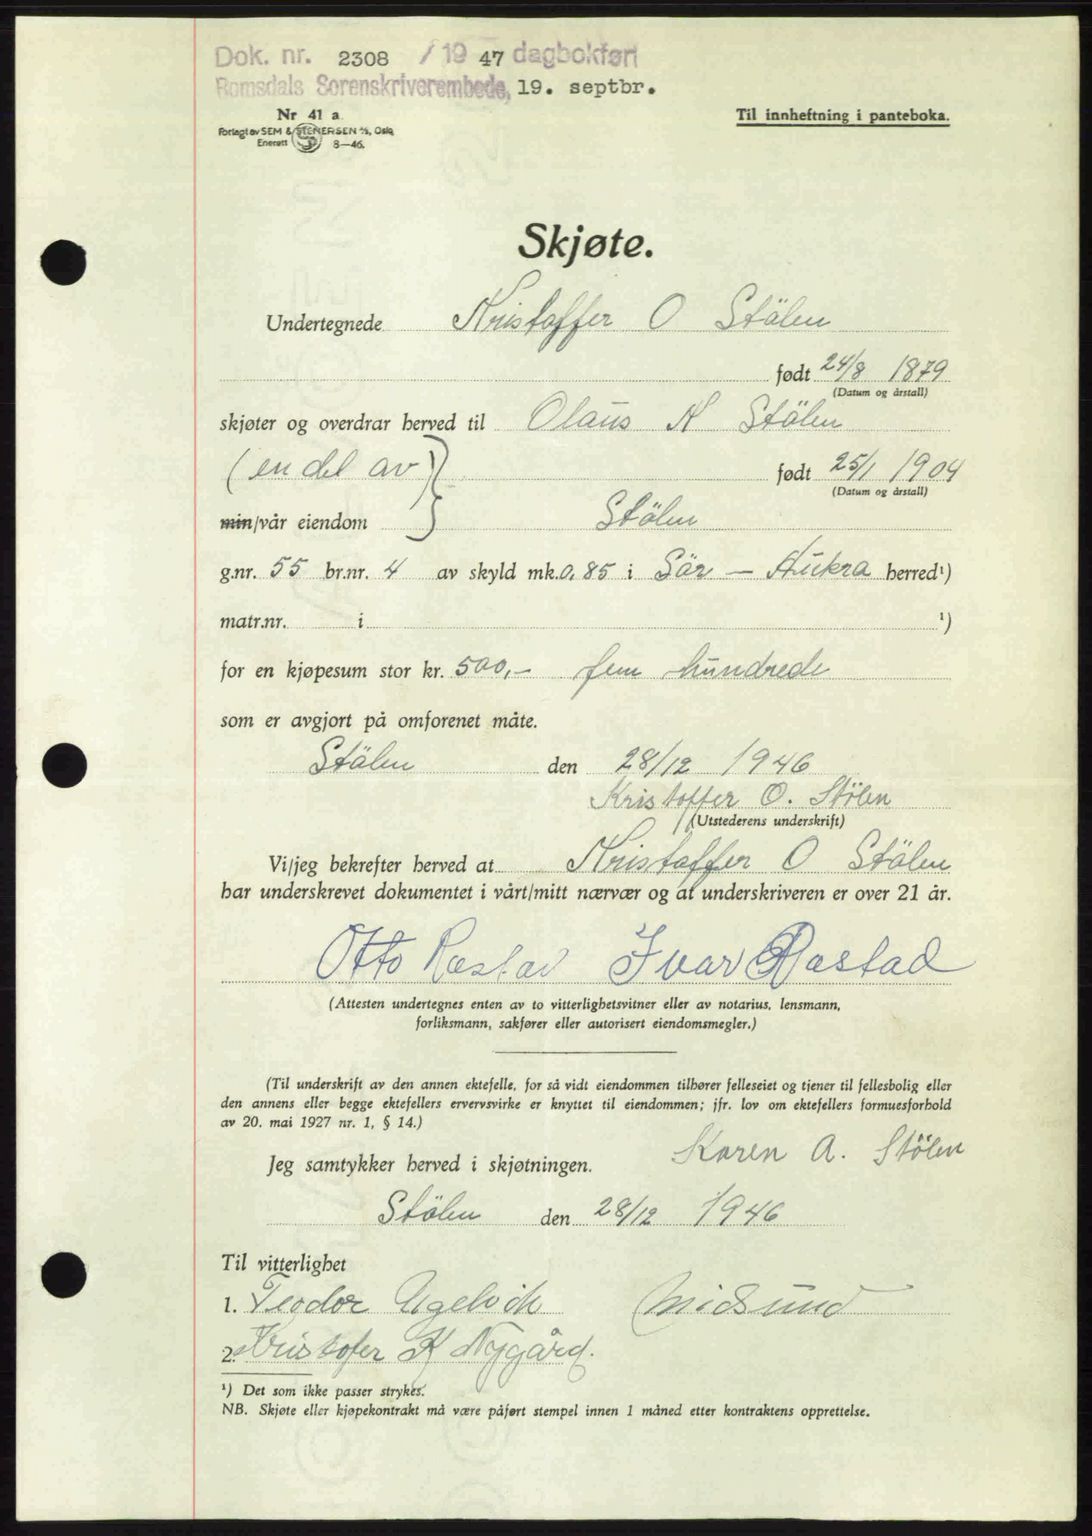 Dok. nr. 2308 / 19 47 dagbokført
Romsdals Sorenskriverembede, 19. septbr.
Nr 41 a
Forlagt av SEM & STENERSEN A/S, Oslo
Enerett 8—46.
Til innheftning i panteboka.
Skjøte.
Undertegnede Kristoffer O Stölen
født 24/8 1879
(Datum og årstall)
skjøter og overdrar herved til Olaus K Stölen
(en del av) født 25/1 1904
(Datum og årstall)
min/vår eiendom Stölen
g.nr. 55 br.nr. 4 av skyld mk. 0,85 i Sör — Aukra herred¹)
matr.nr. i ¹)
for en kjøpesum stor kr. 500,- fem hundrede
som er avgjort på omforenet måte.
Stölen den 28/12 1946
Kristoffer O. Stölen
(Utstederens underskrift)
Vi/jeg bekrefter herved at Kristoffer O Stölen
har underskrevet dokumentet i vårt/mitt nærvær og at underskriveren er over 21 år.
Otto Rastad Ivar Rastad
(Attesten undertegnes enten av to vitterlighetsvitner eller av notarius, lensmann,
forliksmann, sakfører eller autorisert eiendomsmegler.)
(Til underskrift av den annen ektefelle, for så vidt eiendommen tilhører felleseiet og tjener til fellesbolig eller
den annens eller begge ektefellers ervervsvirke er knyttet til eiendommen; jfr. lov om ektefellers formuesforhold
av 20. mai 1927 nr. 1, § 14.)
Karen A. Stölen
Jeg samtykker herved i skjøtningen.
Stölen den 28/12 1946
Til vitterlighet
1. Teodor Ugelvik Midsund
2. Kristofer K Nygård.
¹) Det som ikke passer strykes.
NB. Skjøte eller kjøpekontrakt må være påført stempel innen 1 måned etter kontraktens opprettelse.